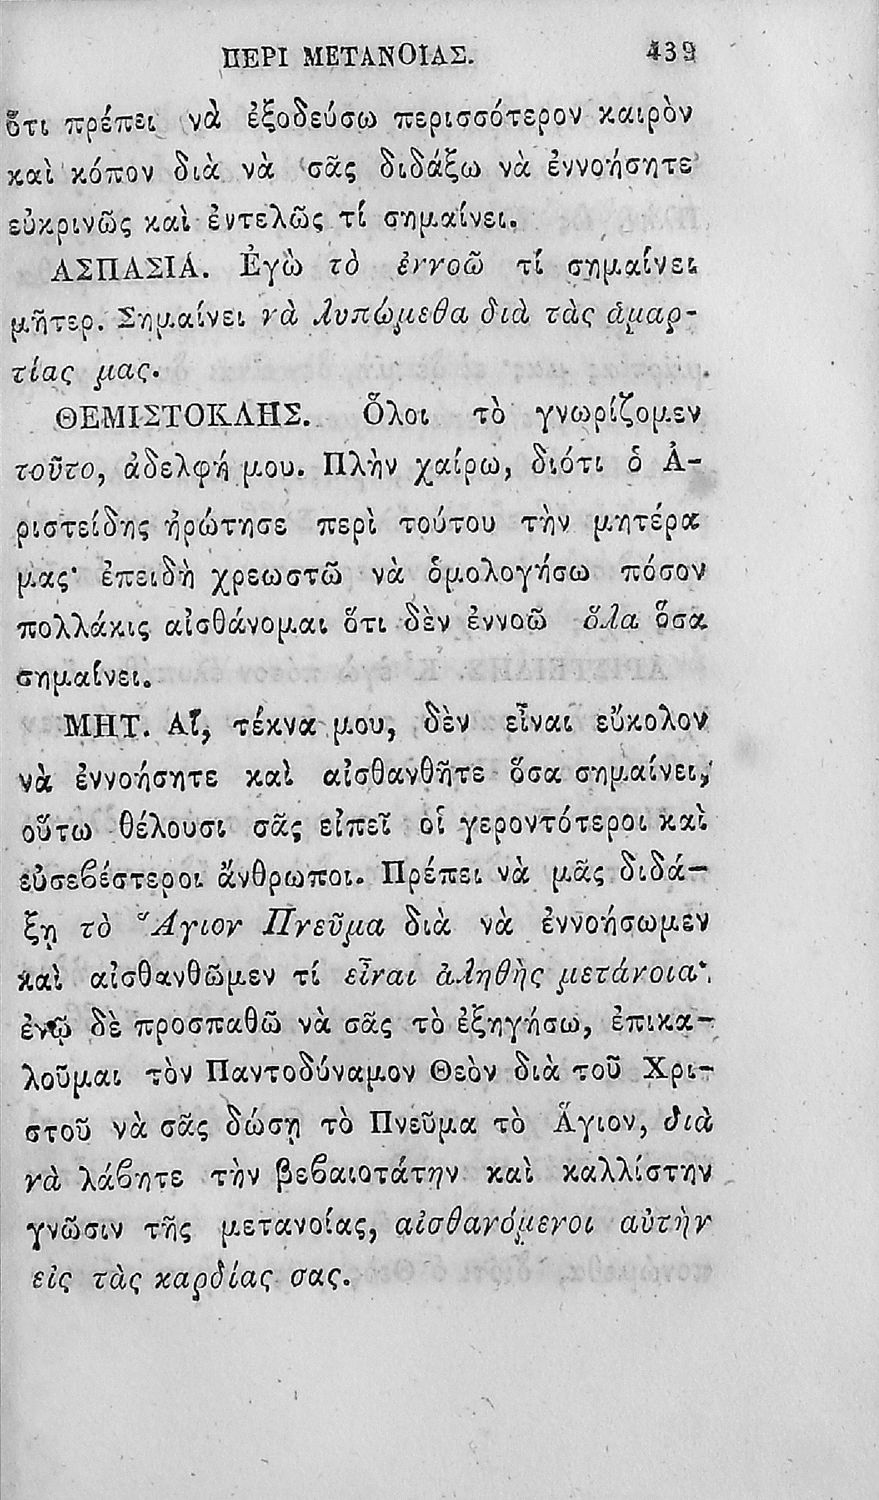 ΠΕΡΙ ΜΕΤΑΝΟΙΑΣ. 439
ὅτι πρέπει νὰ ἐξοδεύσω περισσότερον καιρὸν
καὶ κόπον διὰ νὰ σᾶς διδάξω νὰ ἐννοήσητε
εὐκρινῶς καὶ ἐντελῶς τί σημαίνει.
ΑΣΠΑΣΙΑ. Ἐγὼ τὸ ἐννοῶ τί σημαίνει
μῆτερ. Σημαίνει νὰ λυπώμεθα διὰ τὰς ἁμαρ-
τίας μας.
ΘΕΜΙΣΤΟΚΛΗΣ. Ὅλοι τὸ γνωρίζομεν
τοῦτο, ἀδελφή μου. Πλὴν χαίρω, διότι ὁ Ἀ-
ριστείδης ἠρώτησε περὶ τούτου τὴν μητέρα
μας· ἐπειδὴ χρεωστῶ νὰ ὁμολογήσω πόσον
πολλάκις αἰσθάνομαι ὅτι δὲν ἐννοῶ ὅλα ὅσα
σημαίνει.
ΜΗΤ. Αἴ, τέκνα μου, δὲν εἶναι εὔκολον
νὰ ἐννοήσητε καὶ αἰσθανθῆτε ὅσα σημαίνει,
οὕτω θέλουσι σᾶς εἰπεῖ οἱ γεροντότεροι καὶ
εὐσεβέστεροι ἄνθρωποι. Πρέπει νὰ μᾶς διδά-
ξῃ τὸ Ἅγιον Πνεῦμα διὰ νὰ ἐννοήσωμεν
καὶ αἰσθανθῶμεν τί εἶναι ἀληθὴς μετάνοια·
ἐνῷ δὲ προσπαθῶ νὰ σᾶς τὸ ἐξηγήσω, ἐπικα-
λοῦμαι τὸν Παντοδύναμον Θεὸν διὰ τοῦ Χρι-
στοῦ νὰ σᾶς δώσῃ τὸ Πνεῦμα τὸ Ἅγιον, διὰ
νὰ λάβητε τὴν βεβαιοτάτην καὶ καλλίστην
γνῶσιν τῆς μετανοίας, αἰσθανόμενοι αὐτὴν
εἰς τὰς καρδίας σας.